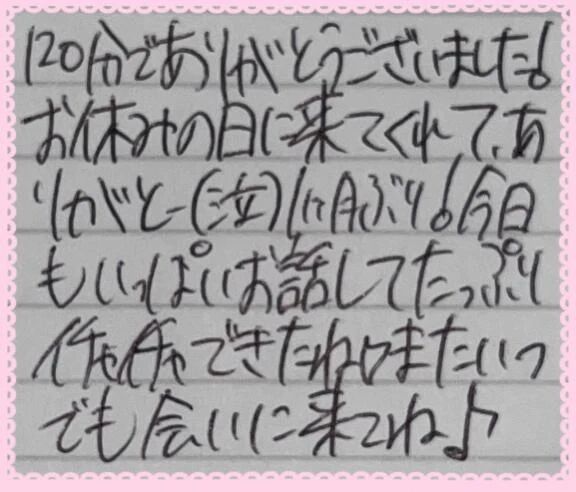 120分でありがとうございました!
お休みの日に来てくれて、あ
りがとー(泣)1ヶ月ぶり!今日
もいっぱいお話してたっぷり
イチャイチャできたね♡またいつ
でも会いに来てね♪